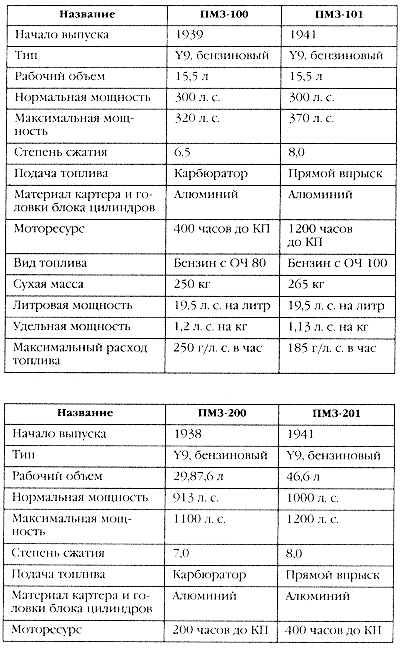 Название ПМЗ-100 ПМЗ-101
Начало выпуска 1939 1941
Тип Y9, бензиновый Y9, бензиновый
Рабочий объем 15,5 л 15,5 л
Нормальная мощность 300 л. с. 300 л. с.
Максимальная мощ- 320 л. с. 370 л. с.
ность
Степень сжатия 6,5 8,0
Подача топлива Карбюратор Прямой впрыск
Материал картера и го- Алюминий Алюминий
ловки блока цилиндров
Моторесурс 400 часов до КП 1200 часов
до КП
Вид топлива Бензин с ОЧ 80 Бензин с ОЧ 100
Сухая масса 250 кг 265 кг
Литровая мощность 19,5 л. с. на литр 19,5 л. с. на литр
Удельная мощность 1,2 л. с. на кг 1,13 л. с. на кг
Максимальный расход 250 г/л. с. в час 185 г/л. с. в час
топлива
Название ПМЗ-200 ПМЗ-201
Начало выпуска 1938 1941
Тип Y9, бензиновый Y9, бензиновый
Рабочий объем 29,87,6 л 46,6 л
Нормальная мощность 913 л. с. 1000 л. с.
Максимальная мощ- 1100 л. с. 1200 л. с.
ность
Степень сжатия 7,0 8,0
Подача топлива Карбюратор Прямой впрыск
Материал картера и го- Алюминий Алюминий
ловки блока цилиндров
Моторесурс 200 часов до КП 400 часов до КП